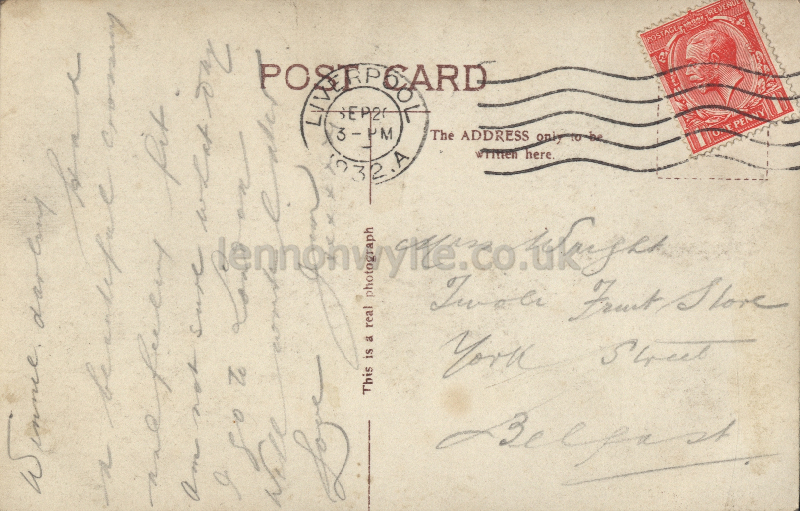 POST CARD
LIVERPOOL
SEP 2
3-PM
1932.A
POSTAGE REVENUE
1 ONE PENNY 1
The ADDRESS only to be
written here.
This is a real photograph
lennonwylie.co.uk
Winnie, darling
Had
a beautiful crossing
and feeling fit.
Am not sure what day
I go to London
Will write later
Love Jim
xxxx
Wright
Tivoli Fruit Store
York Street
Belfast